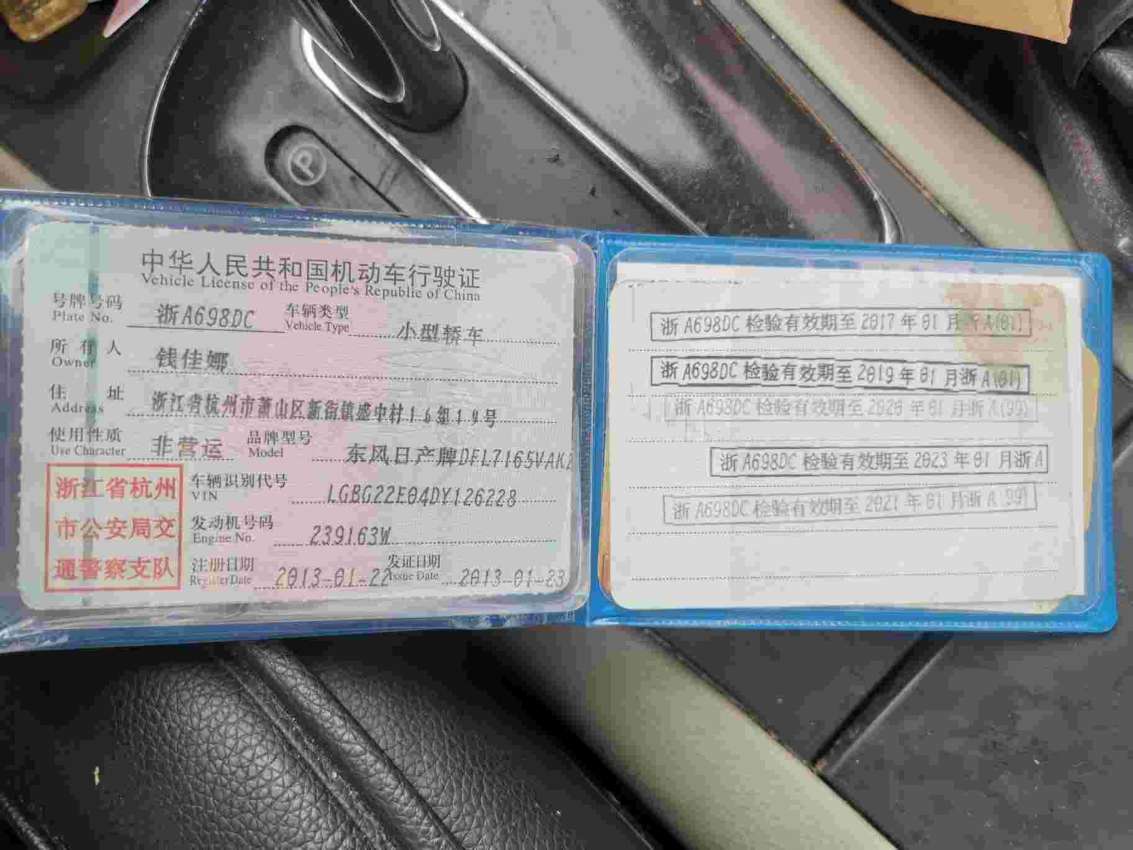 中华人民共和国机动车行驶证
Vehicle License of the People's Republic of China
号牌号码 浙A698DC 车辆类型 小型轿车
Plate No. Vehicle Type
所有人 钱佳娜
Owner
住址 浙江省杭州市萧山区新街镇盛中村16组19号
Address
使用性质 非营运 品牌型号 东风日产牌DFL7165VAK
Use Character Model
浙江省杭州
市公安局交
通警察支队
车辆识别代号 LGBG22E04DY126228
VIN
发动机号码 239163W
Engine No.
注册日期 2013-01-22 发证日期 2013-01-23
Register Date Issue Date
浙A698DC 检验有效期至2017年01月浙A(01)
浙A698DC 检验有效期至2019年01月浙A(01)
浙A698DC 检验有效期至2020年01月浙A(99)
浙A698DC 检验有效期至2023年01月浙A
浙A698DC 检验有效期至2021年01月浙A(99)
P